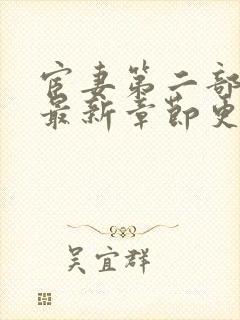 宦妻第二部
最新章节更
吴宜群